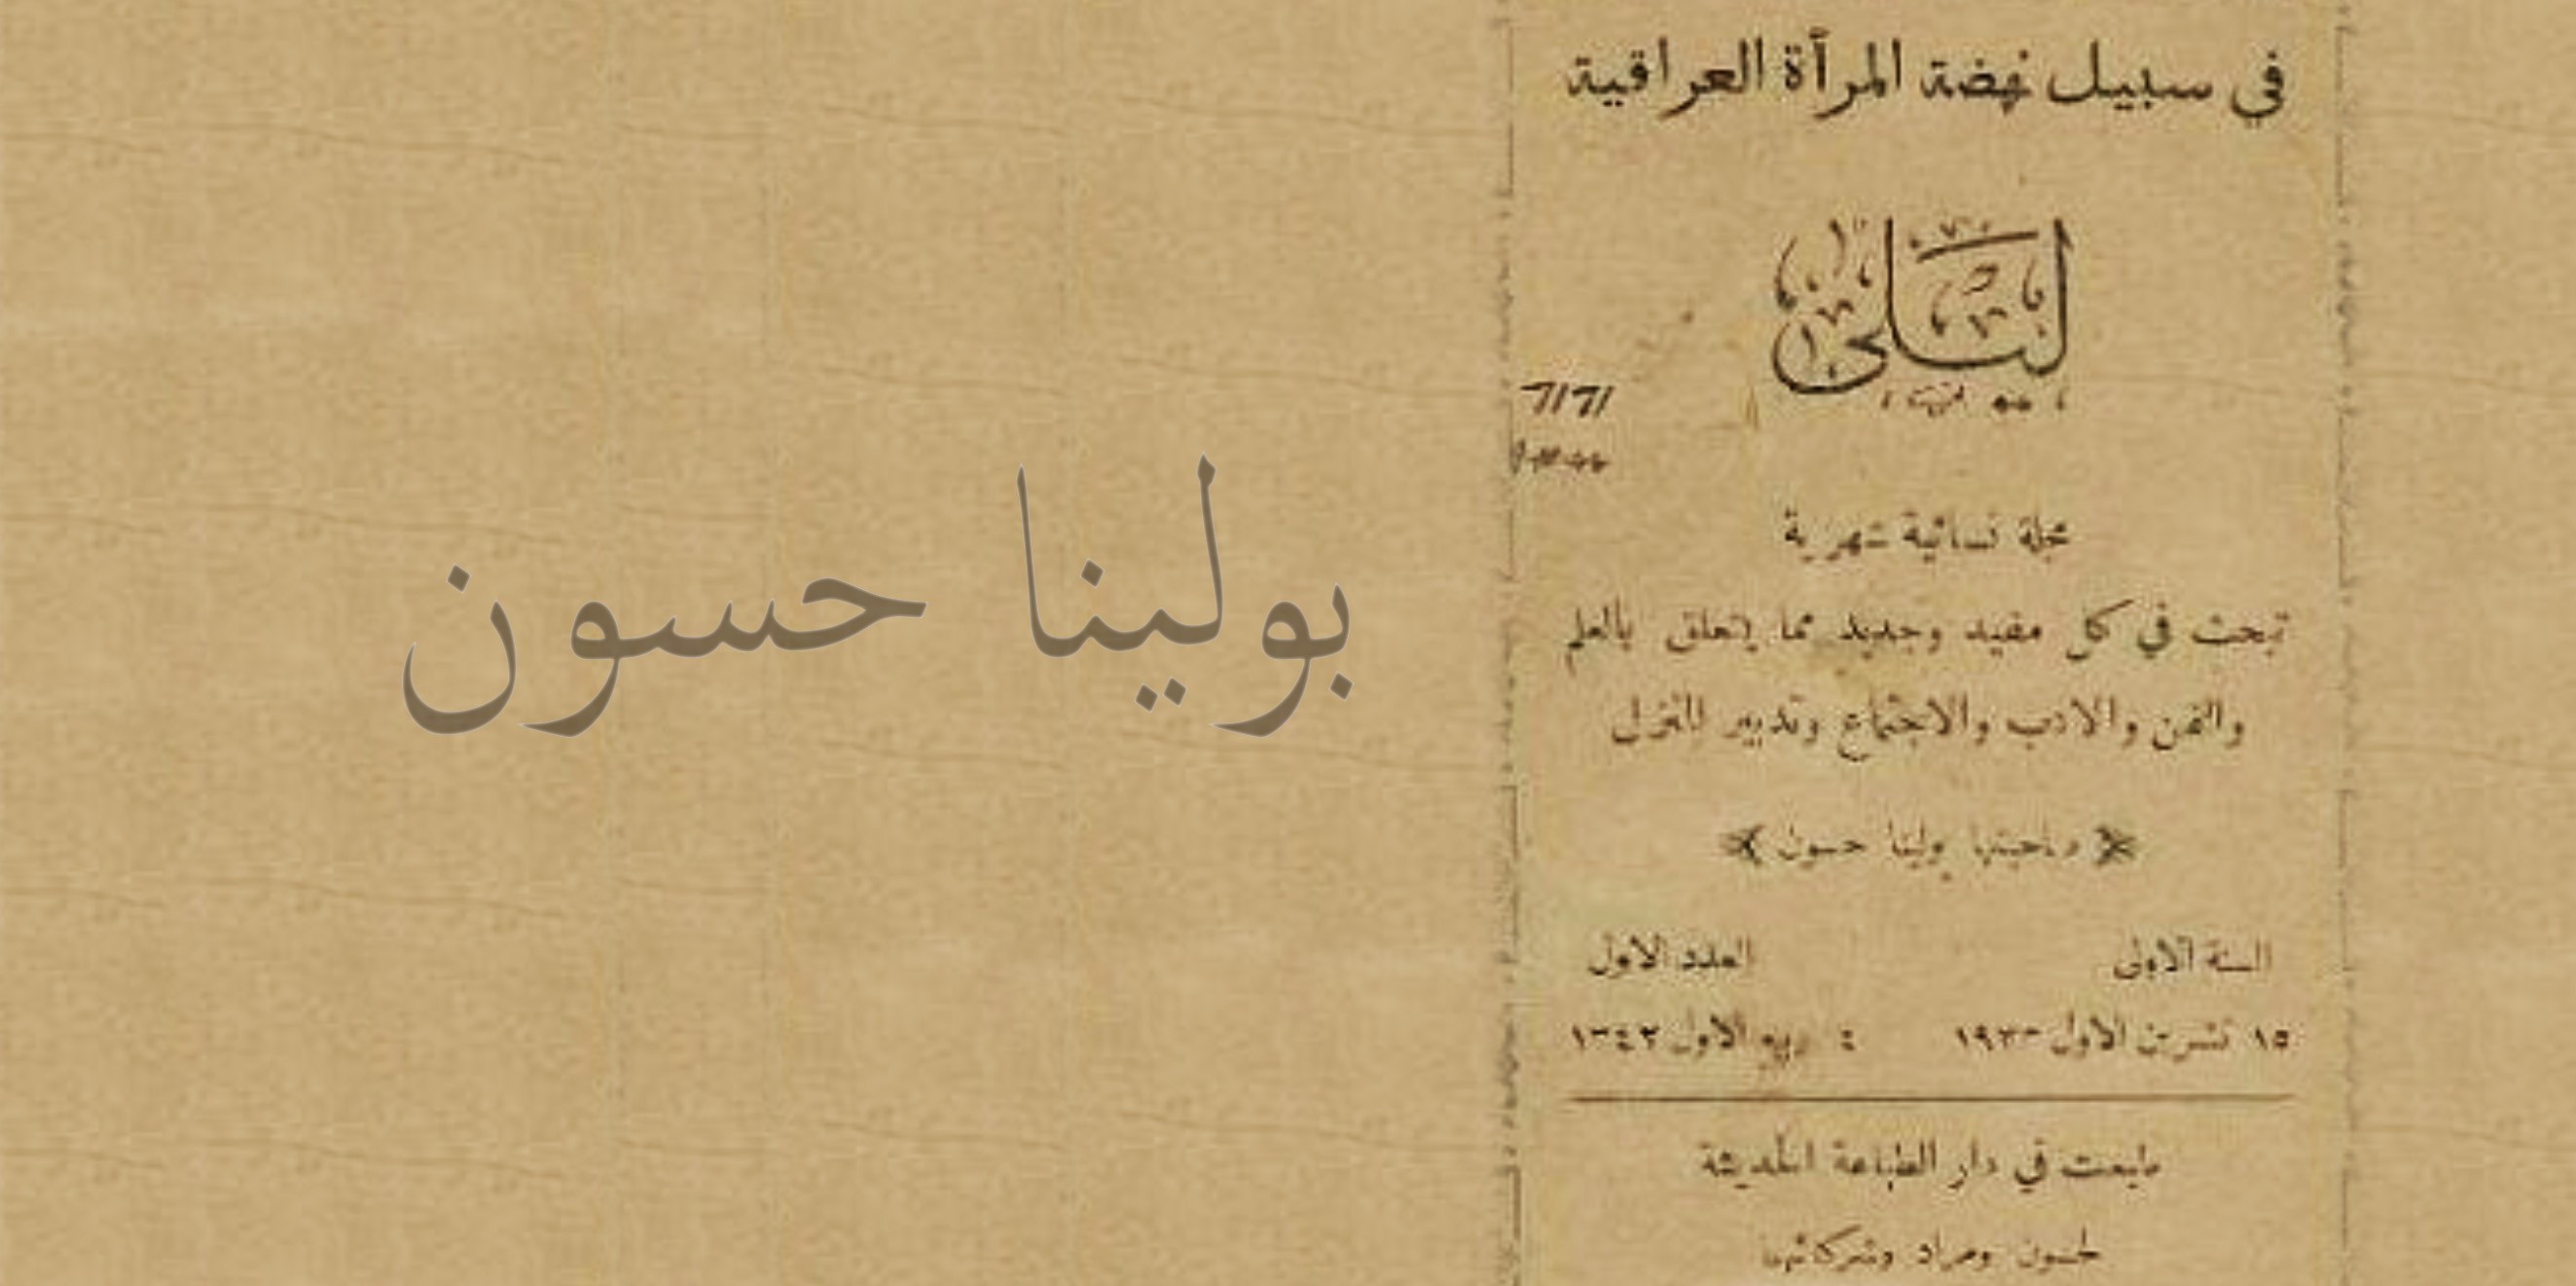 في سبيل نهضة المرأة العراقية
ليلى
بولينا حسون
مجلة نسائية شهرية
تبحث في كل مفيد وجديد مما يتعلق بالعلم
والفن والادب والاجتماع وتدبير المنزل
صاحبتها بولينا حسون
السنة الاولى العدد الاول
١٥ تشرين الاول ١٩٢٣ ٤ ربيع الاول ١٣٤٢
طبعت في دار الطباعة الحديثة
لحسون ومراد وشركائهما